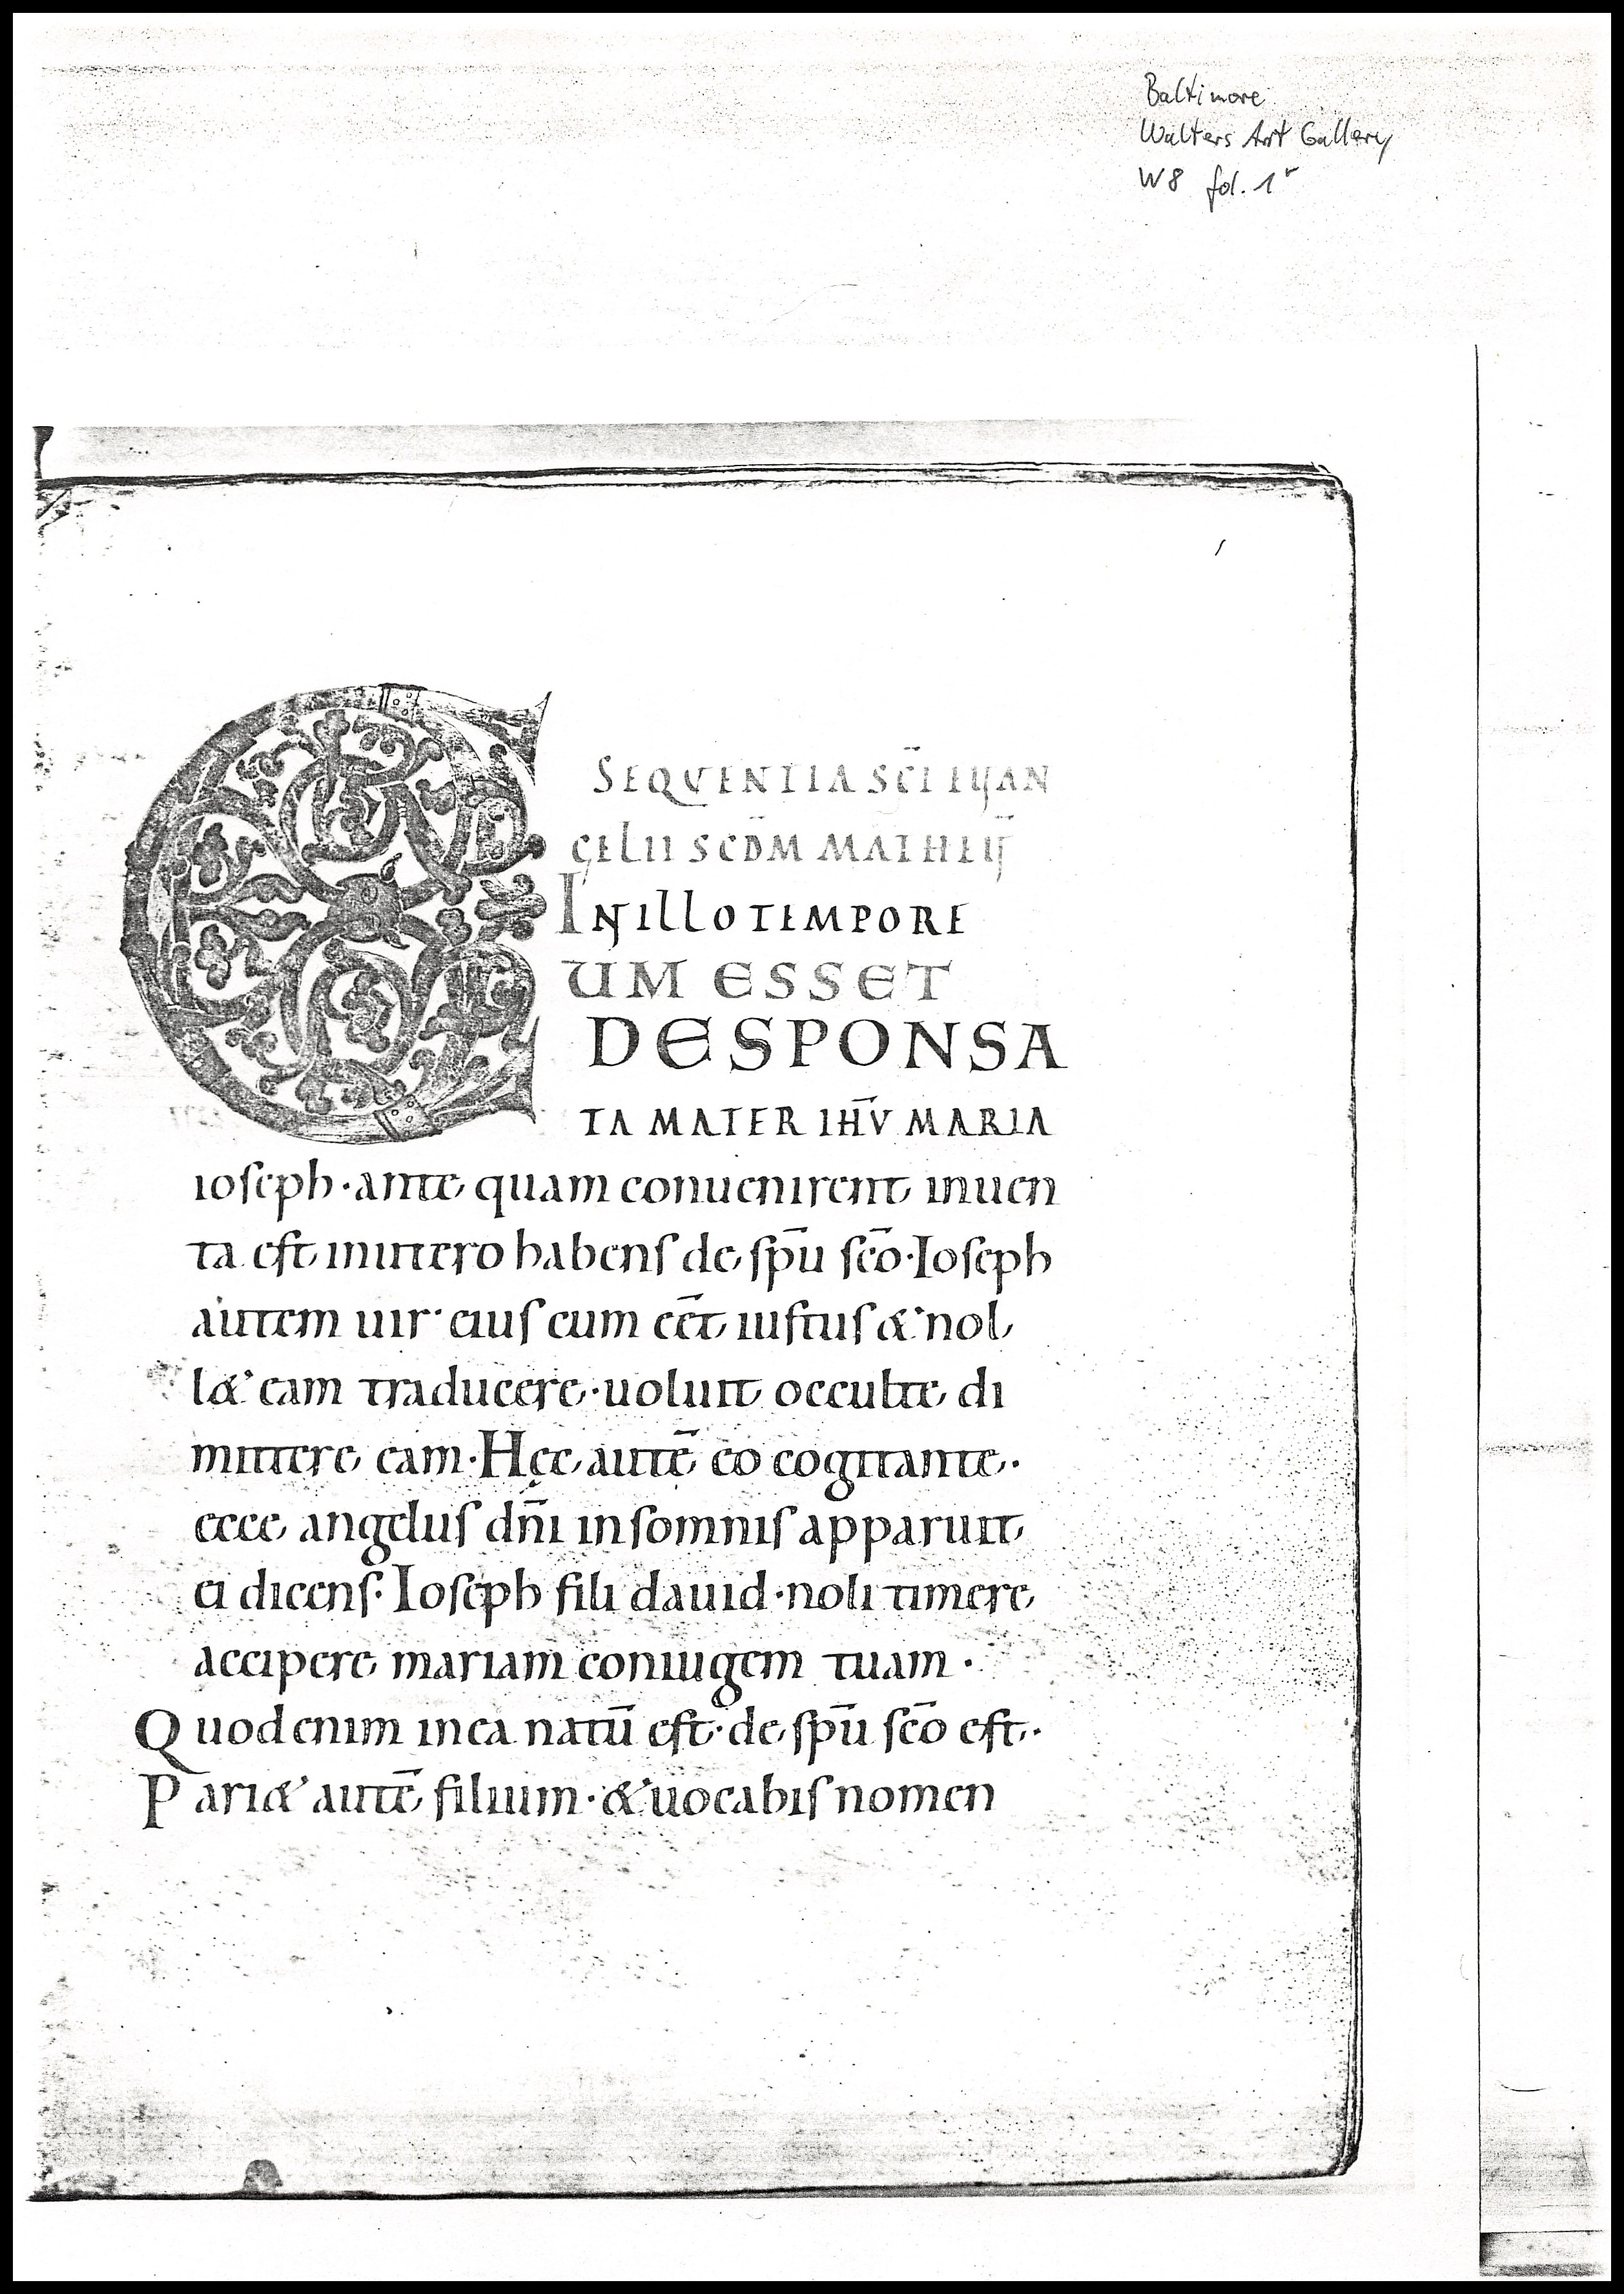 Baltimore
Walters Art Gallery
W8 fol. 1r
SEQVENTIA SC̄I EVAN
GELII SCD̄M MATHEV̄
IN ILLO TEMPORE
CUM ESSET
DESPONSA
TA MATER IHV̄ MARIA
ioseph · ante quam conuenirent inuen
ta est in utero habens de sp̄u sc̄o · Ioseph
autem uir · eius cum eēt iustus & nol
l& eam traducere · uoluit occulte di
mittere eam · Hęc autē eo cogitante ·
ecce angelus dn̄i in somnis apparuit
ei dicens · Ioseph fili dauid · noli timere
accipere mariam coniugem tuam ·
Quod enim in ea natū est · de sp̄u sc̄o est ·
Pari& autē filium · & uocabis nomen